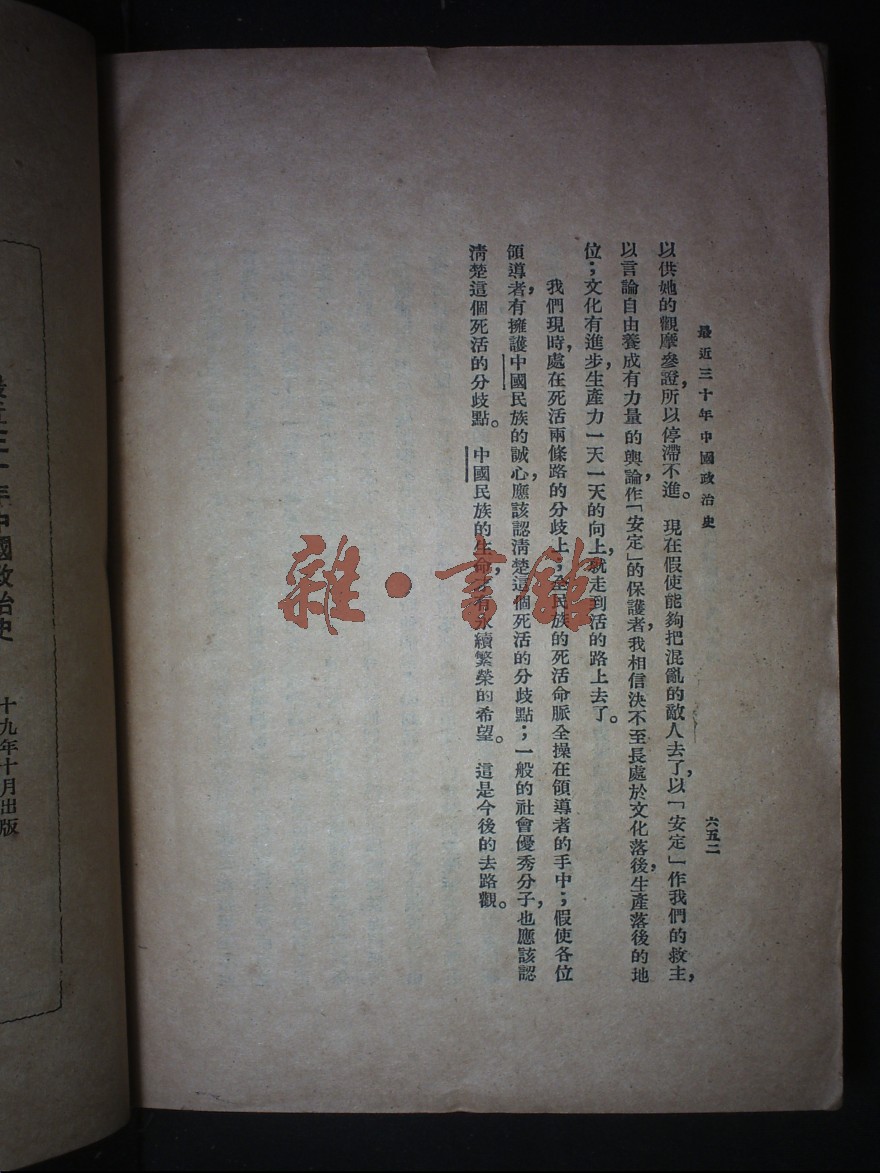 最近三十年中國政治史
六五二
以供她的觀摩參證，所以停滯不進。　現在假使能夠把混亂的敵人去了，以「安定」作我們的救主，
以言論自由養成有力量的輿論，作「安定」的保護者，我相信決不至長處於文化落後，生產落後的地
位；文化有進步，生產力一天一天的向上，就走到活的路上去了。
我們現時，處在死活兩條路的分歧上；全民族的死活命脈全操在領導者的手中；假使各位
領導者，有擁護中國民族的誠心，應該認清楚這個死活的分歧點；一般的社會優秀分子，也應該認
清楚這個死活的分歧點。　中國民族的生命，才有永續繁榮的希望。　這是今後的去路觀。
雜·書館
最近三十年中國政治史
十九年十月出版